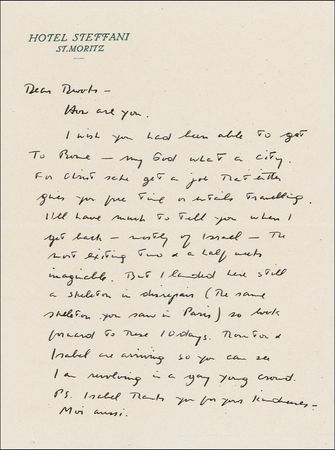 HOTEL STEFFANI
ST. MORITZ
Dear Doots –
How are you.
I wish you had been able to get
To Rome – my God what a city.
For Christ sake get a job that either
gives you free time or entails travelling.
I'll have much to tell you when I
get back – mostly of Israel – The
most exiting two & a half weeks
imaginable. But I landed here still
a skeleton in disrepair (The same
skeleton you saw in Paris) so look
forward to these 10 days.
Isabel are arriving so you can see
I am revolving in a gay young crowd.
PS. Isabel thanks you for your kindness –
Moi aussi.